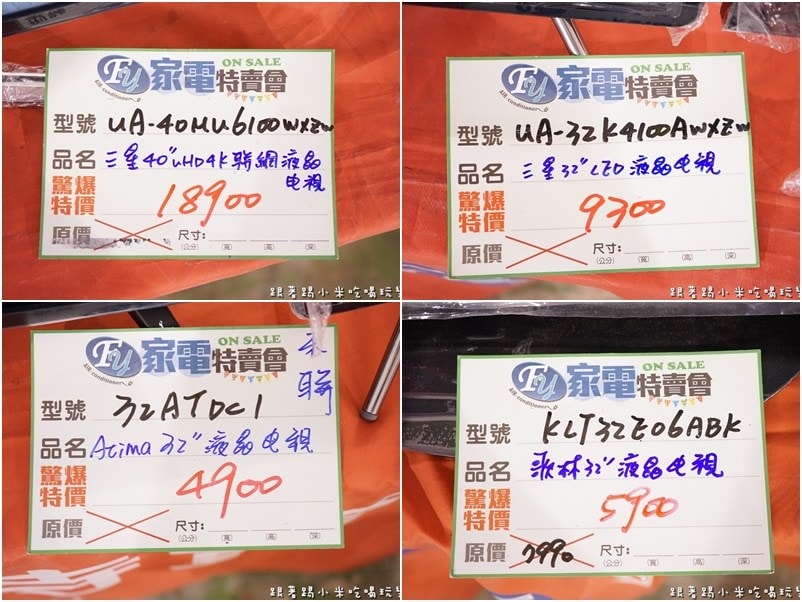 FY 家電特賣會 ON SALE
Air conditioner
型號 UA-40MU6100WXZW
品名 三星40"UHD4K聯網液晶
电視
驚爆
特價 18900
原價 尺寸:
(公分) (寬) (高) (深)
跟著踢小米吃喝玩樂
FY 家電特賣會 ON SALE
Air conditioner
型號 UA-32K4100AWXZW
品名 三星32"LED液晶电視
驚爆
特價 9300
原價 尺寸:
(公分) (寬) (高) (深)
跟著踢小米吃喝玩樂
FY 家電特賣會 ON SALE
Air conditioner
聯
型號 32ATDC1
品名 Atima 32"液晶电視
驚爆
特價 4900
原價 尺寸:
(公分) (寬) (高) (深)
跟著踢小米吃喝玩樂
FY 家電特賣會 ON SALE
Air conditioner
型號 KLT32E06ABK
品名 歌林32"液晶电視
驚爆
特價 5900
原價 7990 尺寸:
(公分) (寬) (高) (深)
跟著踢小米吃喝玩樂